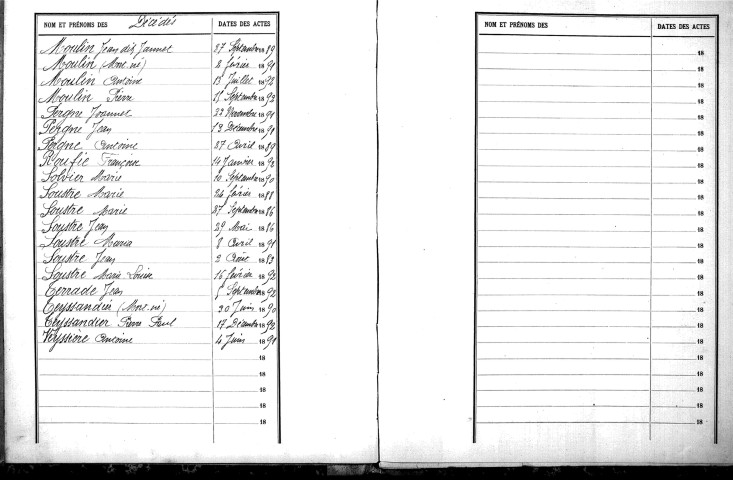 NOM ET PRÉNOMS DES Décédés DATES DES ACTES
Moulin Jean dit Jannet 27 Septembre 1889
Moulin (Mort-né) 2 février 1891
Moulin Antoine 13 Juillet 1892
Moulin Pierre 15 Septembre 1892
Peigne Joannet 22 Novembre 1891
Peigne Jean 12 Décembre 1891
Peigne Antoine 27 Avril 1889
Roufie Françoise 14 Janvier 1892
Solvier Marie 10 Septembre 1890
Soustre Marie 24 février 1888
Soustre Marie 27 Septembre 1886
Soustre Jean 29 Mai 1886
Soustre Maria 8 Avril 1891
Soustre Jean 2 Août 1889
Soustre Marie Louise 16 février 1892
Terrade Jean Septembre 1892
Teyssandier (Mort-né) 20 Juin 1890
Teyssandier Pierre Paul 17 Décembre 1892
Veyssière Antoine 4 Juin 1891
18
18
18
18
18
NOM ET PRÉNOMS DES DATES DES ACTES
18
18
18
18
18
18
18
18
18
18
18
18
18
18
18
18
18
18
18
18
18
18
18
18